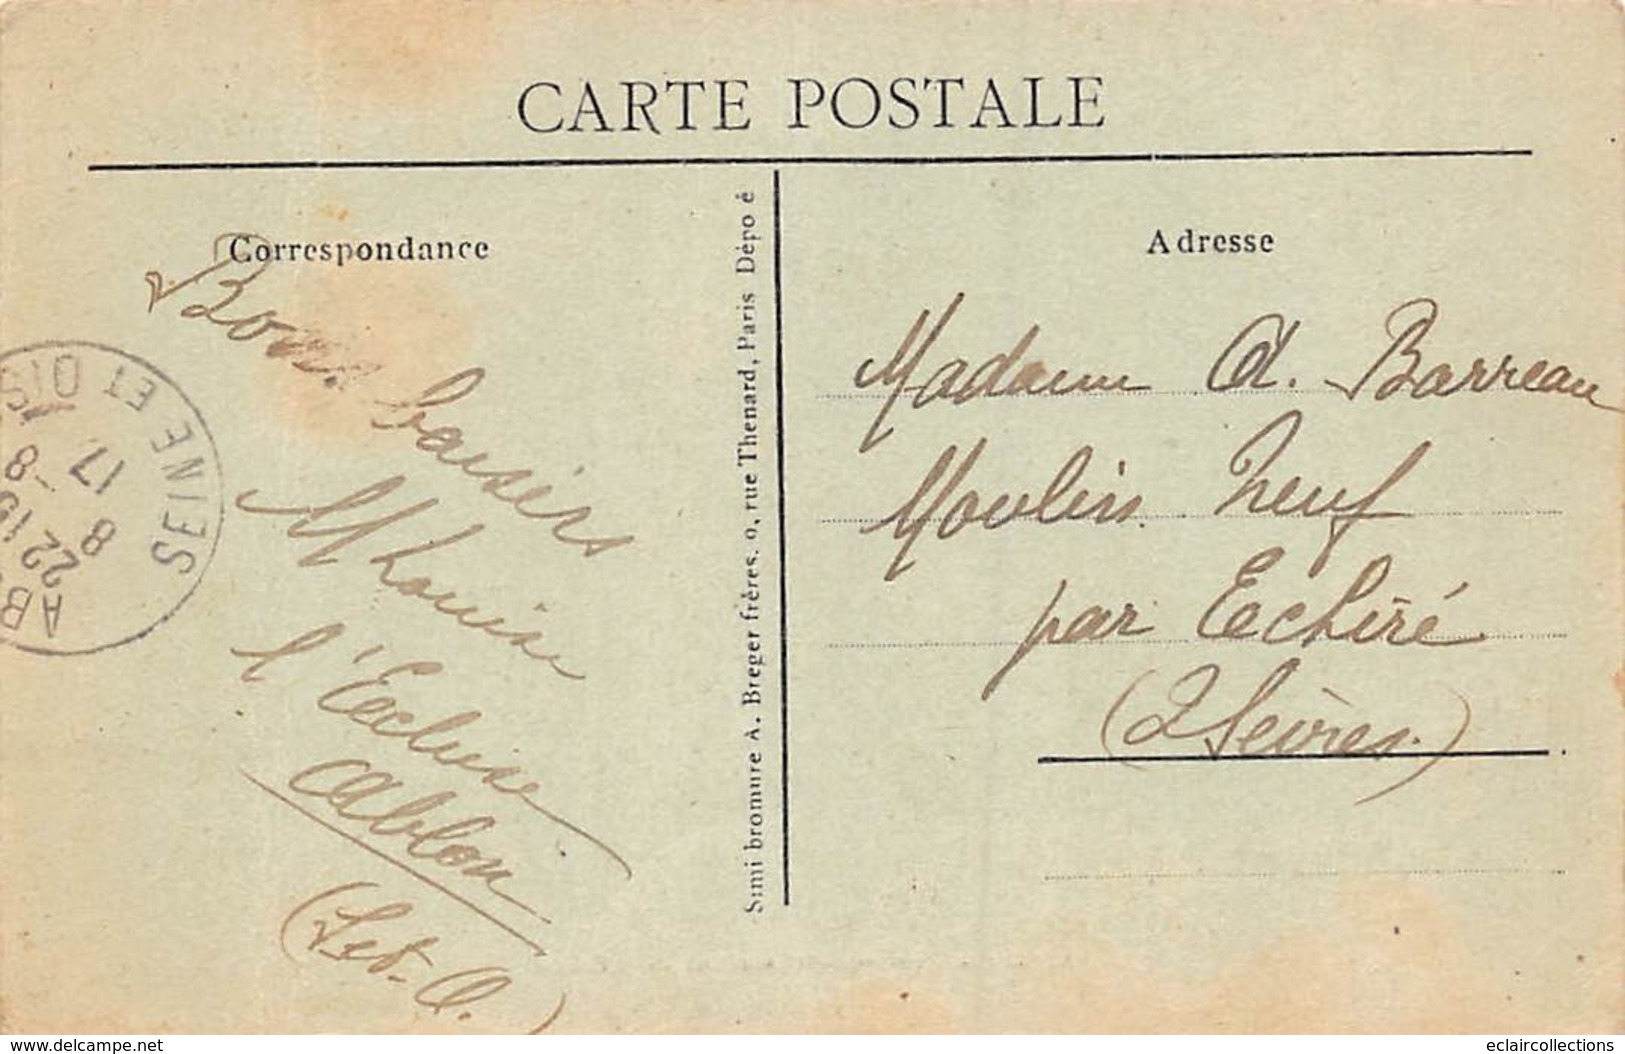 CARTE POSTALE
Correspondance
Bons baisers
M Louise
l'Ecluse
Ablon
(S et O.)
SEINE ET OIS
AB
22
8
17
-8
Simi bromure A. Breger frères. 9, rue Thenard, Paris Dépo é
Adresse
Madame A. Barreau
Moulin Neuf
par Echiré
(2 Sèvres.)
www.delcampe.net
eclaircollections